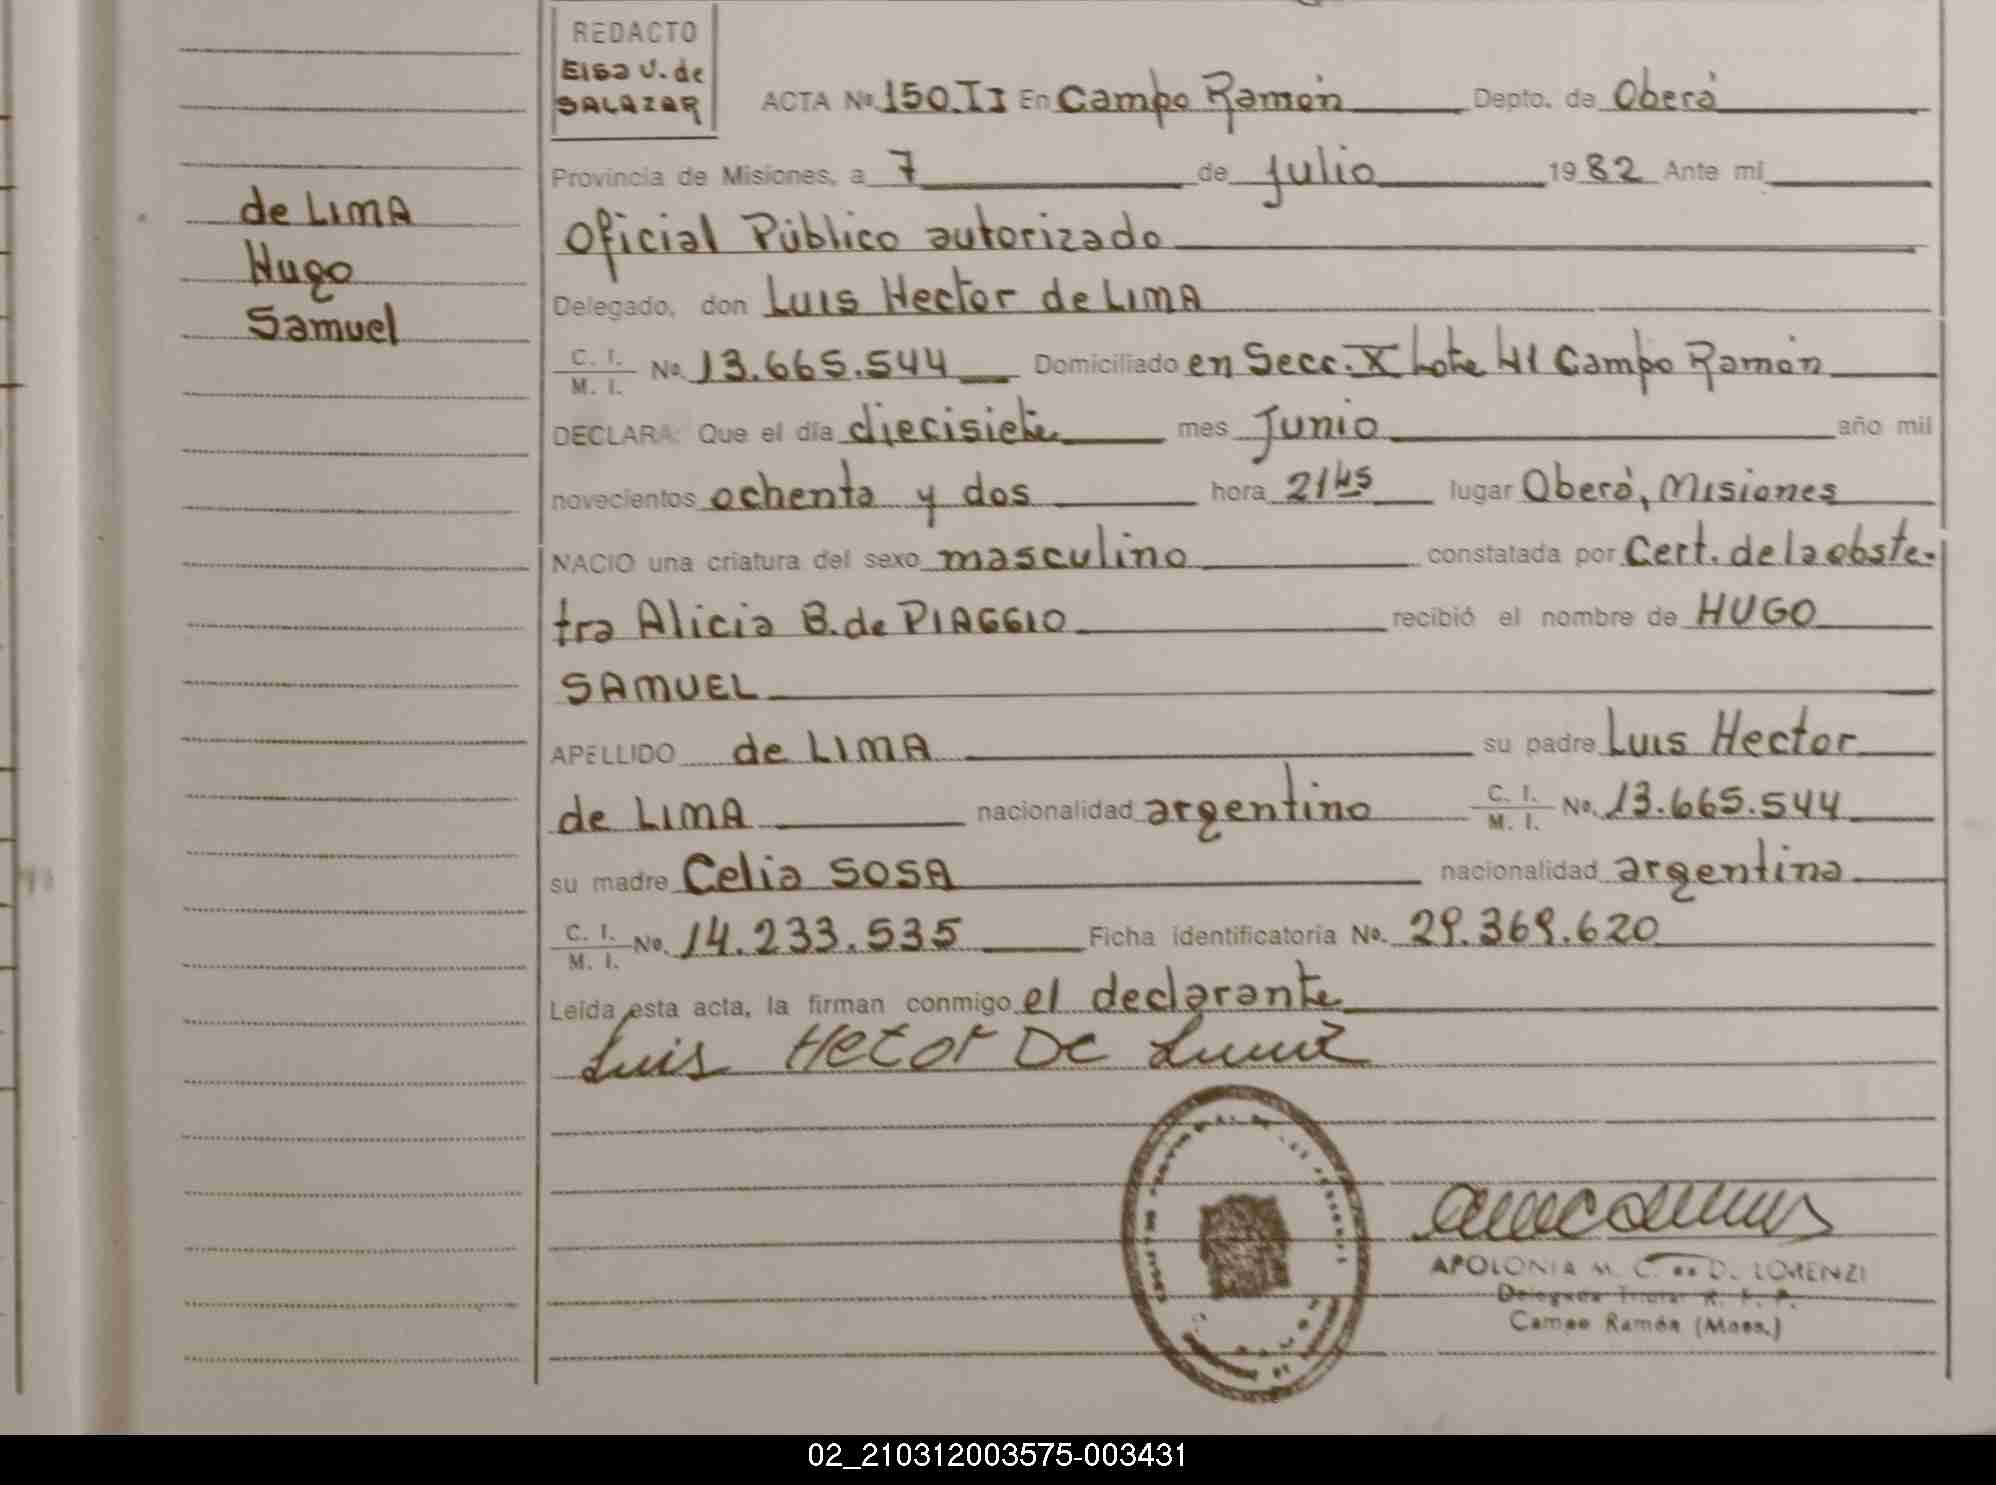 REDACTO
Elsa V. de
SALAZAR
de LIMA
Hugo
Samuel
ACTA No. 150.II En Campo Ramón Depto. de Oberá
Provincia de Misiones, a 7 de Julio 1982 Ante mi
Oficial Público autorizado
Delegado, don Luis Hector de LIMA
C. I. M. I. No. 13.665.544 Domiciliado en Secc. X Lote 41 Campo Ramón
DECLARA: Que el día diecisiete mes Junio año mil
novecientos ochenta y dos hora 21 hs lugar Oberá, Misiones
NACIO una criatura del sexo masculino constatada por Cert. de la obste-
tra Alicia B. de PIAGGIO recibió el nombre de HUGO
SAMUEL
APELLIDO de LIMA su padre Luis Hector
de LIMA nacionalidad argentino C. I. M. I. No. 13.665.544
su madre Celia SOSA nacionalidad argentina
C. I. M. I. No. 14.233.535 Ficha identificatoria No. 29.369.620
Leída esta acta, la firman conmigo el declarante
Luis Hector De Lima
APOLONIA M. C. de D. LORENZI
Delegada Titular R. P.
Campo Ramón (Mnes.)
02_210312003575-003431